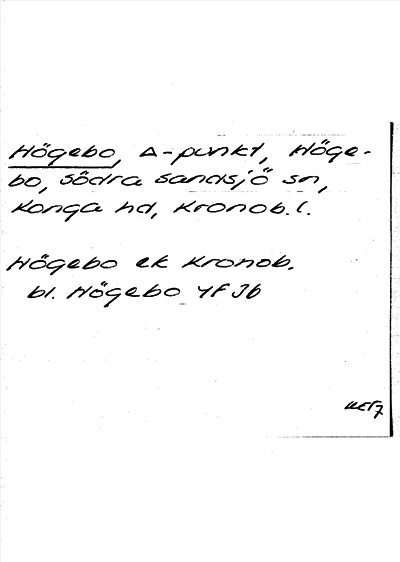 Högebo, Δ-punkt, Höge-
bo, Södra Sandsjö sn,
Konga hd, Kronob. l.
Högebo ek Kronob.
bl. Högebo 4F3b